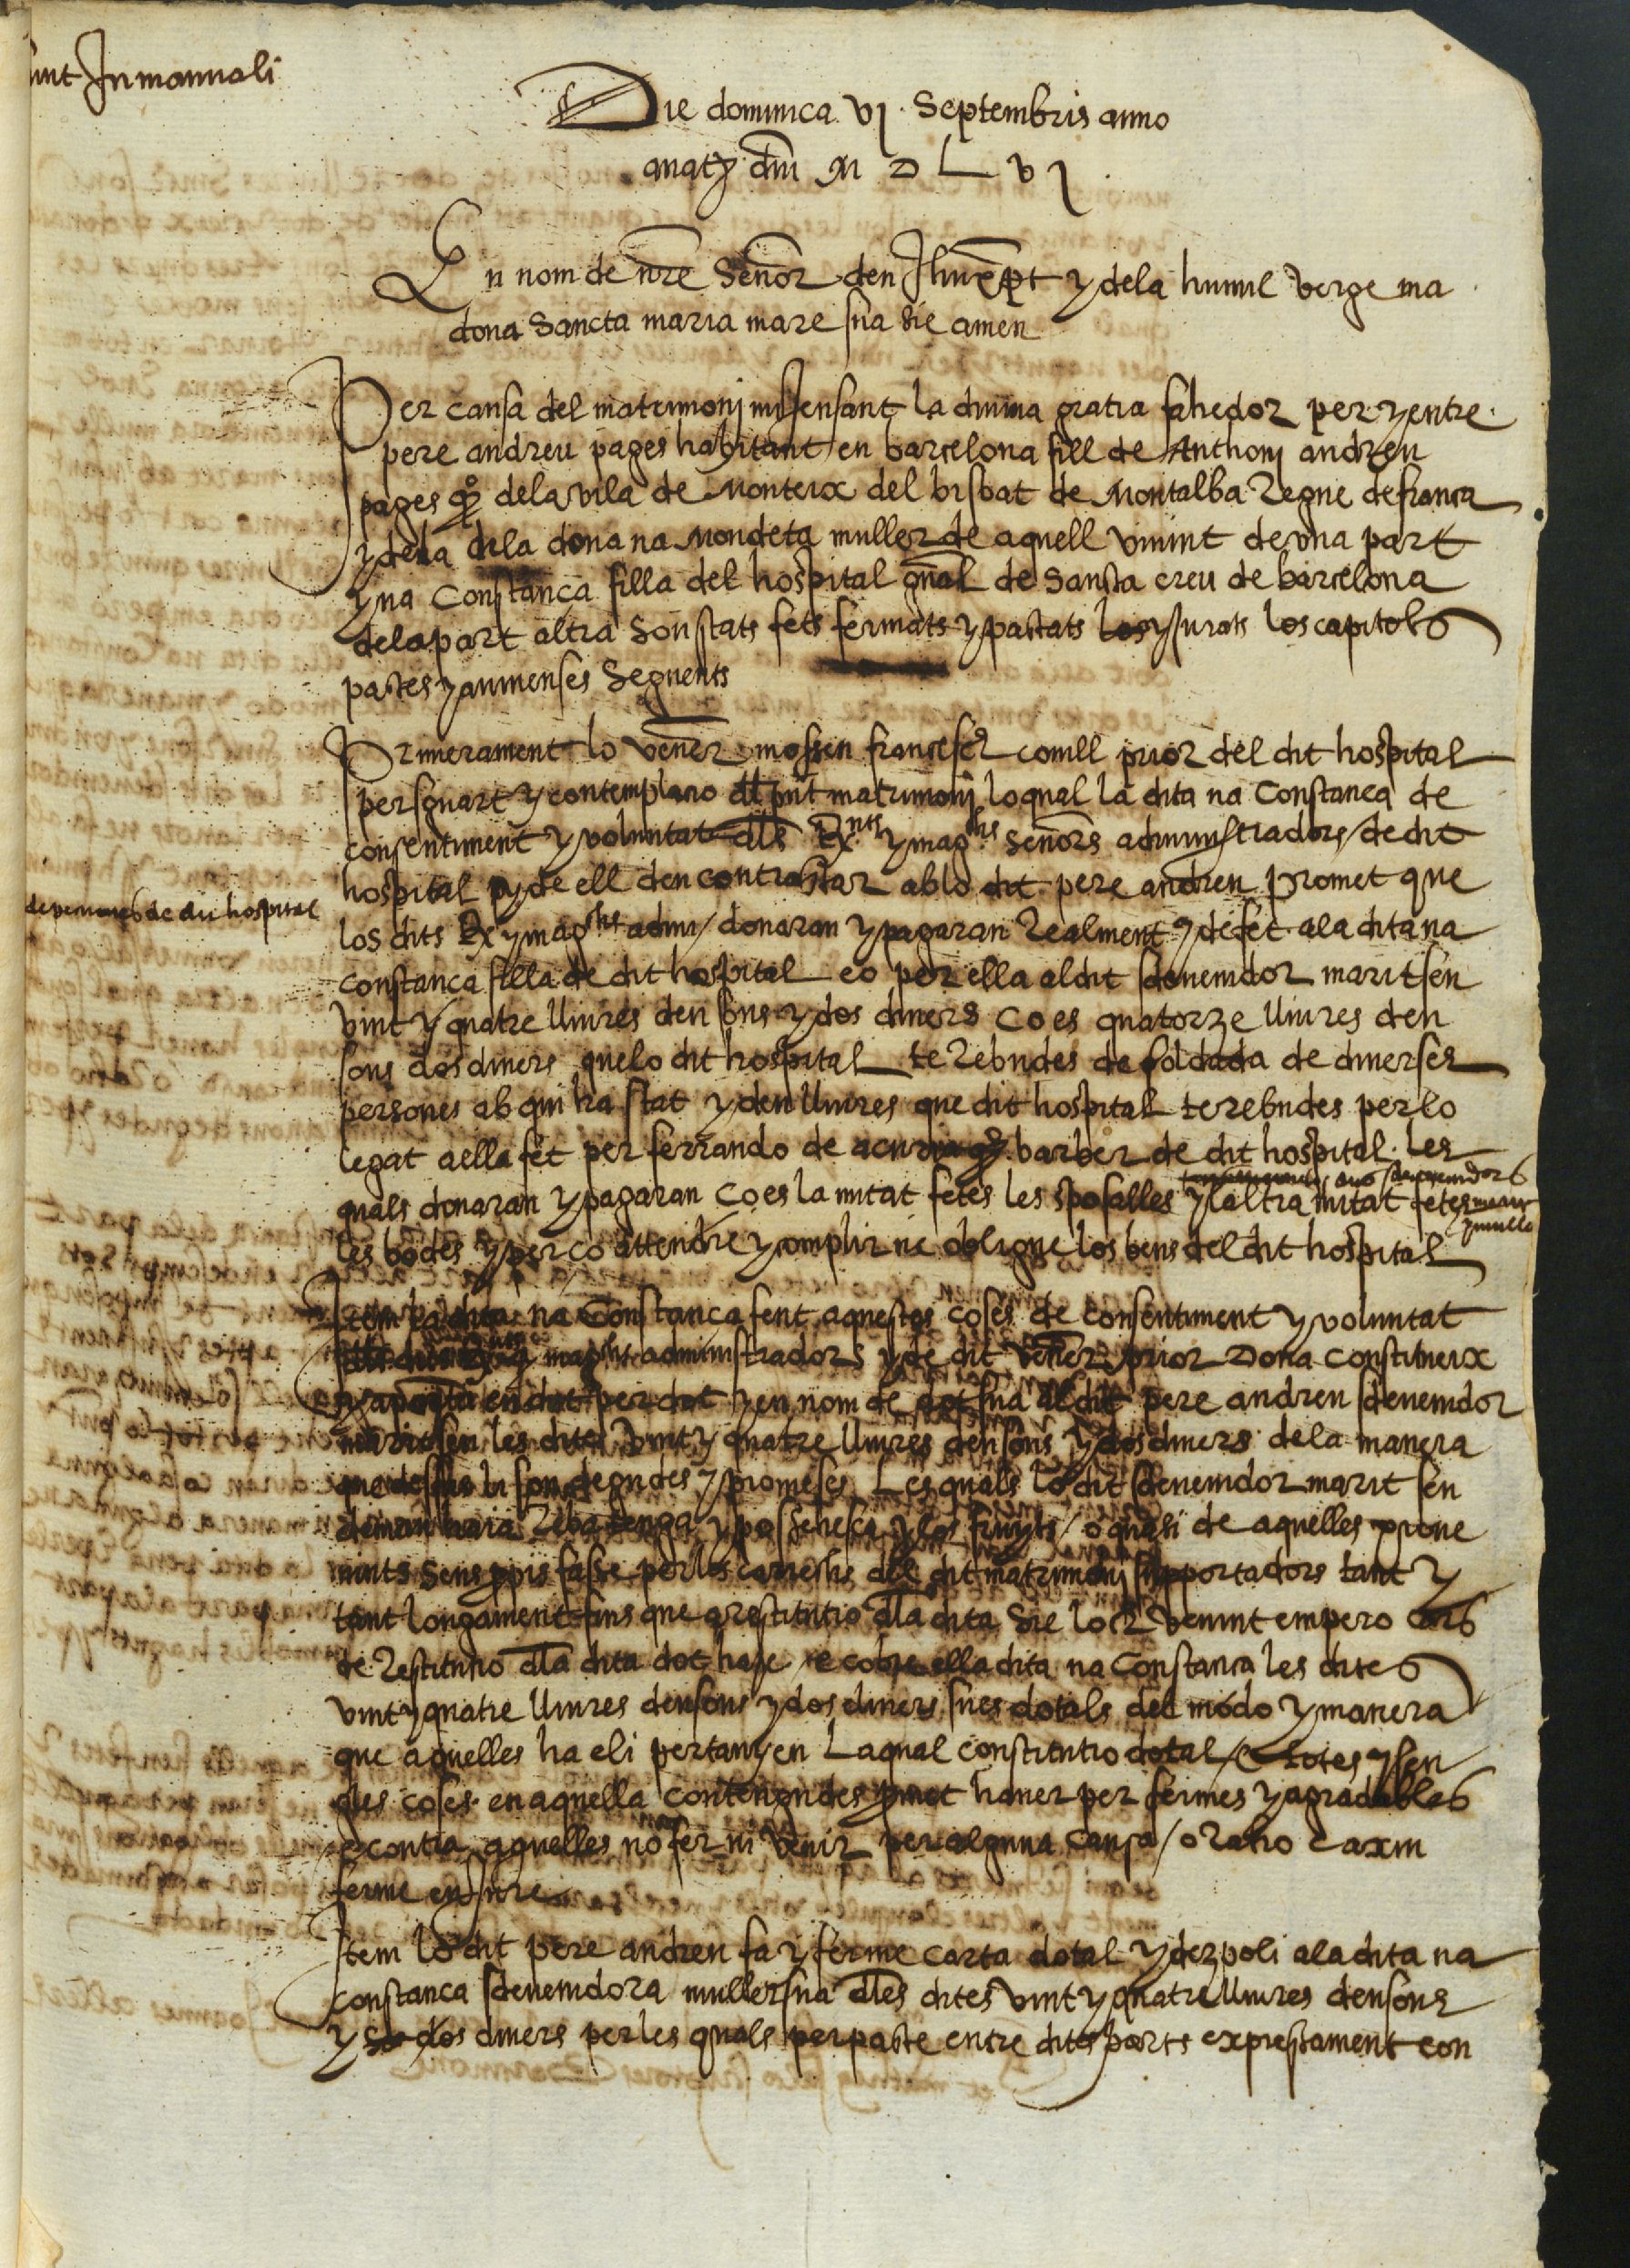 sunt In manuali
Die dominica vj. Septembris anno
a natẏ. dni M D L vj
En nom de nre Señor den Jhu xpt y de la humil verge ma
dona Sancta maria mare sua sie amen
Per causa del matrimonj migensant la divina gratia fahedor per y entre
pere andreu pages habitant en barcelona fill de Anthonj andreu
pages qº de la vila de Monteix del bisbat de Montalba Regne de franca
y de la dela dona na Mondeta muller de aquell vivint de una part
y na Constança filla del hospital gnal de Sancta creu de barcelona
de la part altra son stats fets fermats y pactats los y jurats los capitols
pactes y avinenses Seguents
Primerament lo vener mossen francesch comll prior del dit hospital
per sguart y contemplacio del pnt matrimonj lo qual la dita na Constanca de
consentiment y voluntat dls Rx.nts y maghs señors administradors de dit
hospital y de ell den contractar ab lo dit pere andreu Promet que
los dits Rx y maghs admi / donaran y pagaran Realment y de fet a la dita na
de peccunies de dit hospital
constanca filla de dit hospital eo per ella al dit sdevenidor marit seu
vint y quatre lliures deu sous y dos diners Co es quatorze lliures deu
sous dos diners que lo dit hospital te Rebudes de soldada de diverses
persones ab qui ha stat y deu lliures que dit hospital te rebudes per lo
legat a ella fet per ferrando de acuria qº. barber de dit hospital. les
quals donaran y pagaran Co es la mitat fetes les sposalles y laltra mitat fetes
sdevenidors
marit
y muller
les bodes y per ço attendre y complir ne obligue los bens del dit hospital
Item la dita na Constança fent aquestes coses de consentiment y voluntat
maghs administradors y de dit vener prior Dona Constitueix
y aporta en dot per dot y en nom de dot sua al dit pere andreu sdevenidor
marit seu les dites vint y quatre lliures deu sous y dos diners de la manera
que dessus li son degudes y promeses Les quals lo dit sdevenidor marit seu
deman haia Reba tenga y possehesca y los fruyts / o quasi de aquelles prove
nints seus ppis fasse per los carrechs del dit matrimonj supportadors tant y
tant longament fins que a restitutio dla dita sie loch venint empero cas
de Restitutio dla dita dot haje e cobre ella dita na Constanca les dites
vint y quatre lliures deu sous y dos diners sues dotals del modo y manera
que aquelles ha e li pertanyen La qual constitutio dotal / e totes y sen
gles coses en aquella contengudes pmet haver per fermes y agradables
e contra aquelles no fer ni venir per alguna causa / o Ratio E axin
ferme en jure
Item lo dit pere andreu fa y ferme carta dotal y dezpoli a la dita na
constanca sdevenidora muller sua dles dites vint y quatre lliures deu sous
y so dos diners per les quals per pacte entre dites parts expressament con